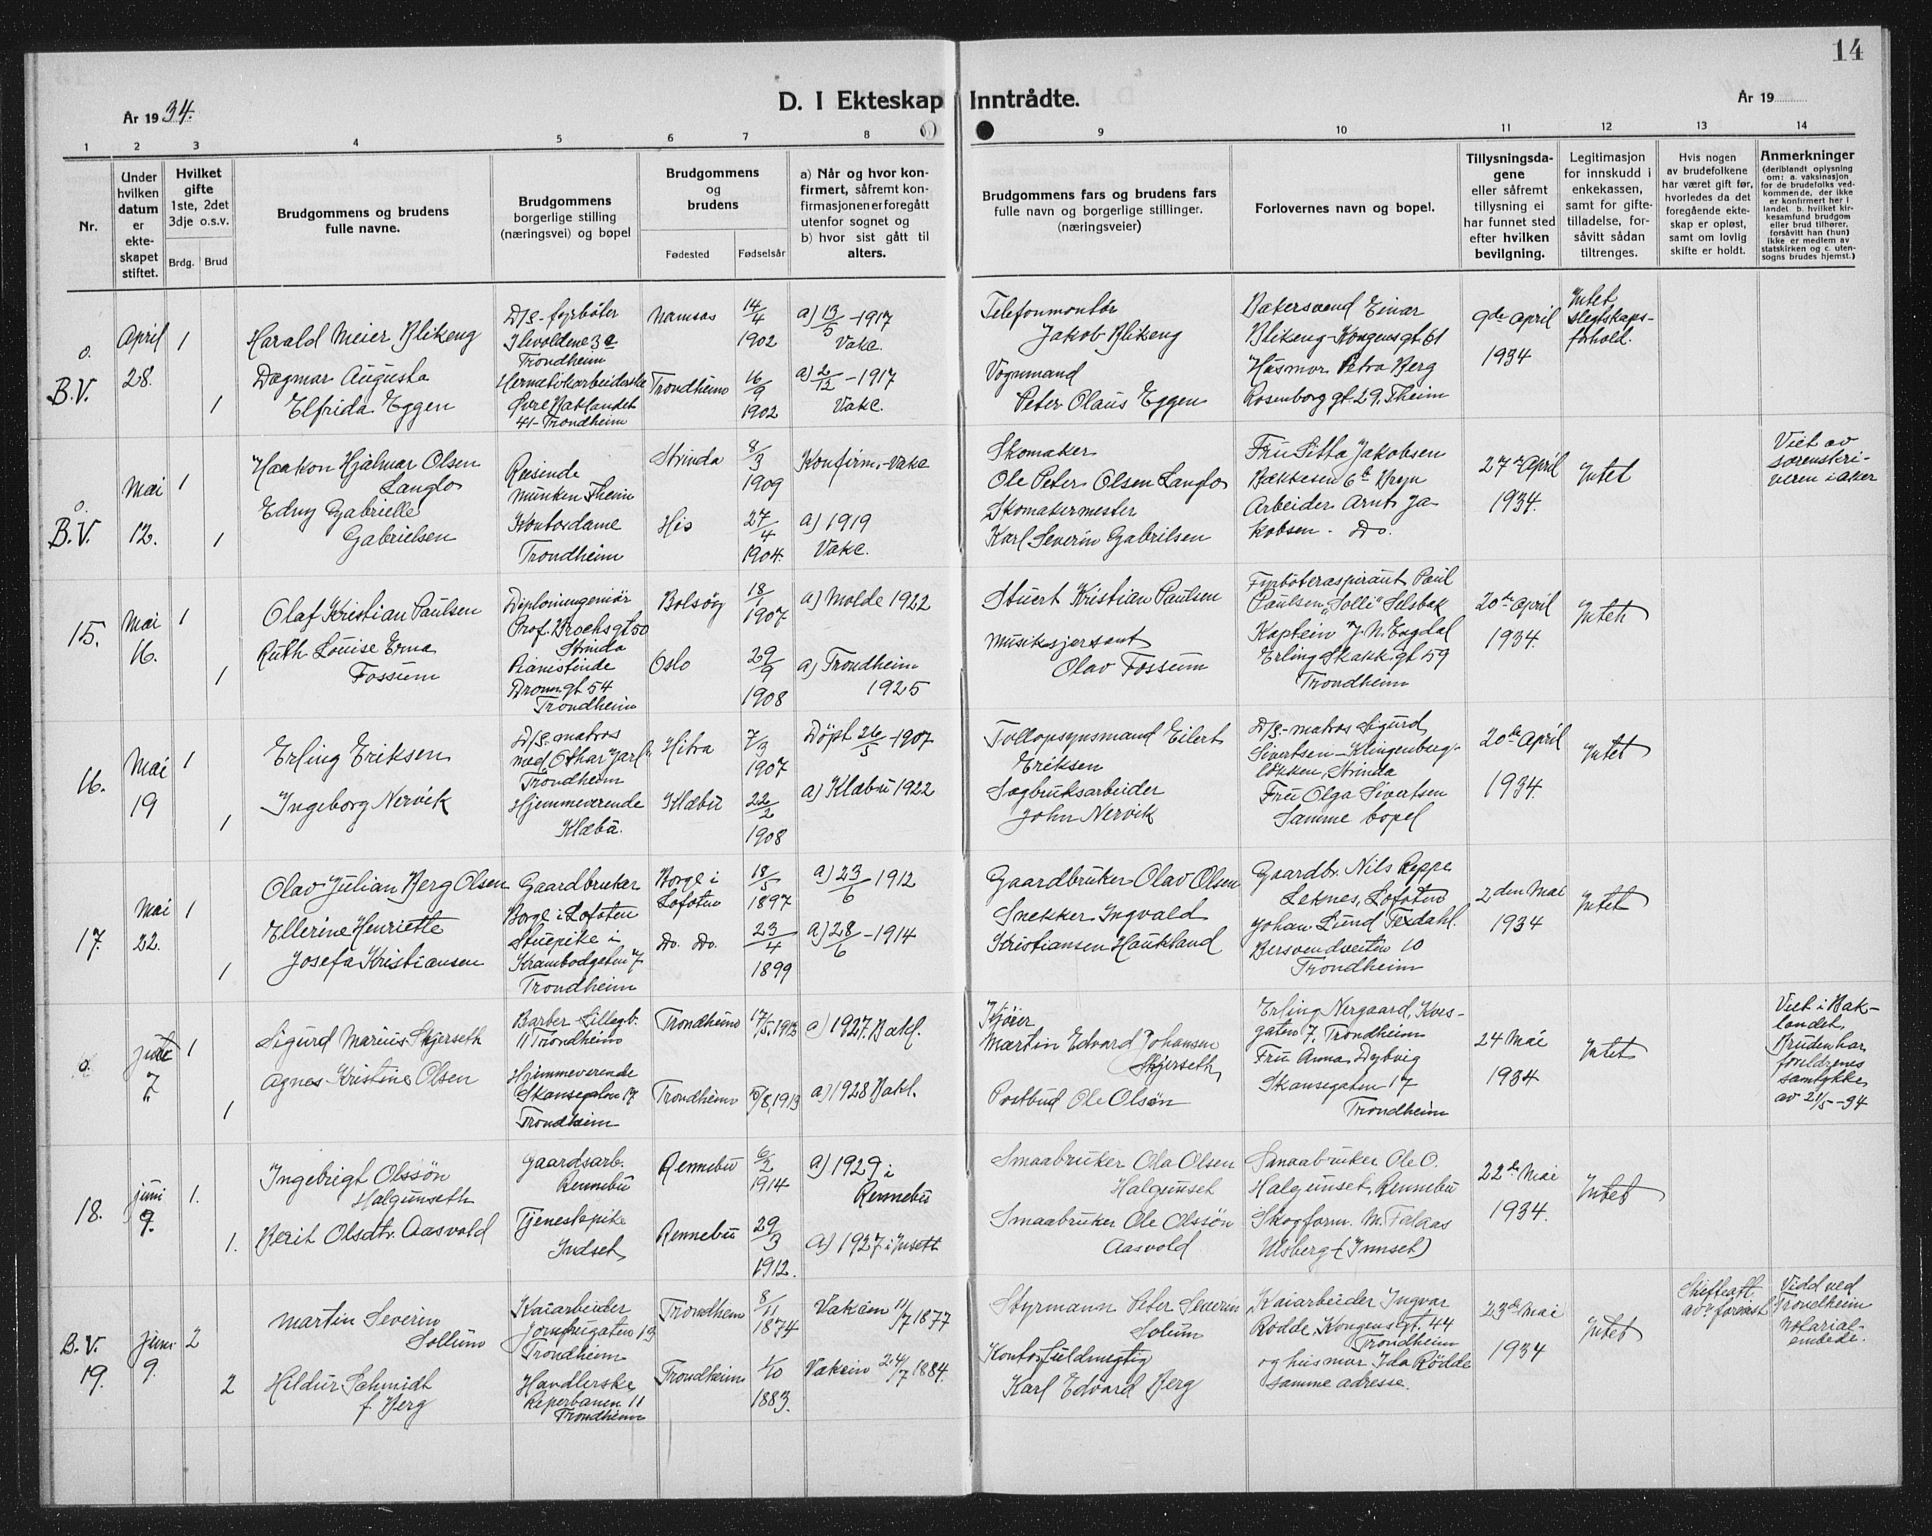 14
D. I Ekteskap Inntrådte.
År 1934.
År 19
1 2 3 4 5 6 7 8 9 10 11 12 13 14
Nr.
Under
hvilken
datum
er
ekte-
skapet
stiftet.
Hvilket
gifte
1ste, 2det
3dje o.s.v.
Brdg. Brud
Brudgommens og brudens
fulle navne.
Brudgommens
borgerlige stilling
(næringsvei) og bopel
Brudgommens
og
brudens
Fødested Fødselsår
a) Når og hvor kon-
firmert, såfremt kon-
firmasjonen er foregått
utenfor sognet og
b) hvor sist gått til
alters.
Brudgommens fars og brudens fars
fulle navn og borgerlige stillinger.
(næringsveier)
Forlovernes navn og bopel.
Tillysningsda-
gene
eller såfremt
tillysning ei
har funnet sted
efter hvilken
bevilgning.
Legitimasjon
for innskudd i
enkekassen,
samt for gifte-
tilladelse, for-
såvitt sådan
tiltrenges.
Hvis nogen
av brudefolkene
har været gift før,
hvorledes da det
foregående ekte-
skap er opløst,
samt om lovlig
skifte er holdt.
Anmerkninger
(deriblandt oplysning
om: a. vaksinasjon
for de brudefolks ved-
kommende, der ikke
er konfirmert her i
landet. b. hvilket kir-
kesamfund brudgom
eller brud tilhører,
forsåvitt han (hun)
ikke er medlem av
statskirken og c. uten-
sogns brudes hjemst.)
o.
B.V.
April
28.
1
1
Harald Meier Blikeng
Dagmar Augusta
Elfrida Eggen
D/S-fyrbøter
Ilevoldene 3e
Trondheim
Hermetikarbeiderske
Øvre Baklandet
41-Trondheim
Namsos
Trondheim
14/4
1902
16/9
1902
a) 13/5-1917
Vake.
a) 2/12-1917
Vake.
Telefonmontør
Jakob Blikeng
Vognmand
Peter Olaus Eggen
Bakersvend Einar
Blikeng-Kongensgt 61
Husmor Petra Berg
Rosenborg gt. 29, Theim
9de April
1934
Intet
slegtskaps-
forhold.
o.
B.V.
Mai
12.
1
1
Haakon Hjalmar Olsen
Langlo
Edny Gabrielle
Gabrielsen
Reisende
Munken Theim
Kontordame
Trondheim
Strinda
His
8/3
1909
27/4
1904.
Konfirm.-Vake
a) 1919
Vake.
Skomaker
Ole Peter Olsen Langlo
Skomakermester
Karl Severin Gabrilsen
Fru Sitta Jakobsen
Bakkesen 6b Bryn
Arbeider Arnt Ja
kobsen - Do.
27de April
1934.
Intet
Viet av
sorenskri-
veren i Aker
15.
Mai
16.
1
1
Olaf Kristian Paulsen
Ruth Louise Erna
Fossum
Diplomingeniør
Prof. Brochs gt 50
Strinda
Pianistinde
Dronn gt 54
Trondheim
Bolsøy
Oslo
18/1
1907
29/9
1908
a) Molde 1922
a) Trondheim
1925
Stuert Kristian Paulsen
Musiksjersant
Olav Fossum
Fyrbøteraspirant Paul
Paulsen, "Solli" Selsbak
Kaptein J. N. Engdal
Erling Skakk. gt 59
Trondheim
20de April
1934.
Intet
16.
Mai
19
1
1
Erling Eriksen
Ingeborg Nervik
D/S. matros
med Othar Jarl
Trondheim
Hjemmeverende
Klæbu.
Hitra
Klæbu
7/3
1907
22/2
1908
Døpt 26/5-1907
a) Klæbu 1922
Tollopsynsmand Eilert
Eriksen
Sagbruksarbeider
John Nervik
D/S-matros Sigurd
Sivertsen-Klingenberg-
løkken, Strinda
Fru Olga Sivertsen
Samme bopel
20de April
1934.
Intet
17.
Mai
22.
1
1
Olav Julian Berg Olsen
Ellerine Henriette
Josefa Kristiansen
Gaardbruker
Borge i Lofoten
Stuepike i
Krambodgaten 7
Trondheim
Borge i
Lofoten
Do. Do.
18/5
1897
23/4
1899
a) 23/6 1912
a) 28/6-1914
Gaardbruker Olav Olsen
Snekker Ingvald
Kristiansen Haukland
Gaardbr. Nils Reppe
Leknes, Lofoten
Johan Lund Texdahl.
Bersvendveiten 10
Trondheim
2den Mai
1934
Intet
o.
7.
1
1
Sigurd Marius Skjerseth
Agnes Kristine Olsen
Barber Lillegb.
11 Trondheim
Hjemmeverende
Skansegaten 17
Trondheim
Trondheim
Trondheim
a) 1927. Bakl.
a) 1928 Bakl.
Kjører
Martin Edvard Johansen
Skjerseth
Postbud Ole Olsøn
Erling Nergaard,
gaten 7. Trondheim
Fru Anna Dybvig
Skansegaten 17
Trondheim
24 Mai
1934
Intet
Viet i Bak-
landet.
Bruden har
foreldrenes
samtykke
av 21/5-34
18.
juni
9.
1.
1.
Ingebrigt Olssøn
Halgunseth
Berit Olsdtr. Aasvold
Gaardsarb.
Rennebu
Tjenestepike
Indset
Rennebu
Rennebu
6/2
1914
29/3
1912.
a) 1929 i
Rennebu
a) 1927 i Insett
Smaabruker Ola Olsen
Halgunset
Smaabruker Ole Olssøn
Aasvold
Smaabruker Ole O.
Halgunset, Rennebu
Skogform. M. Falaas
Ulsberg (Innset)
22de Mai
1934.
Intet
B.V.
19.
Juni
9.
2
2
Martin Severin
Sollum
Hildur Schmidt
f. Berg
Kaiarbeider
Jomfrugaten 13
Trondheim
Handlerske
Reperbanen 11
Trondheim
Trondheim
Trondheim
8/11
1874
1/10
1883.
Vakein 11/7 1877
Vakein 24/7 1884.
Styrmann Peter Severin
Solum
Kontorfuldmegtig
Karl Edvard Berg
Kaiarbeider Ingvar
Rødde, Kongensgt. 44
Trondheim
og husmor Ida Rødde
samme adresse.
23de Mai
1934
Intet
Vidd ved
Trondheim
Notarial-
embede.